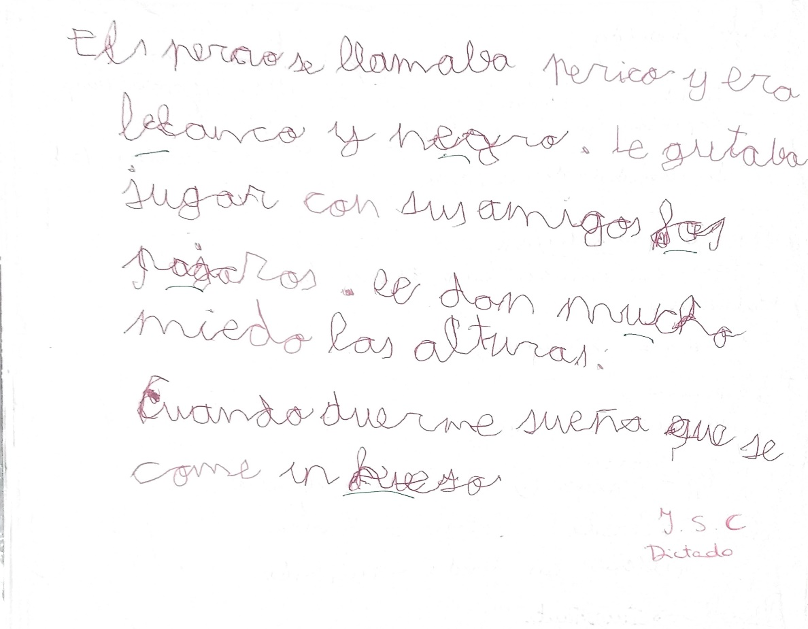 Els perrro se llamaba perico y era
blanco y negro. le gutaba
jugar con sus amigos los
pajaros. le dan mucho
miedo las alturas.
Cuando duerme sueña que se
come un hueso
J. S. C
Dictado